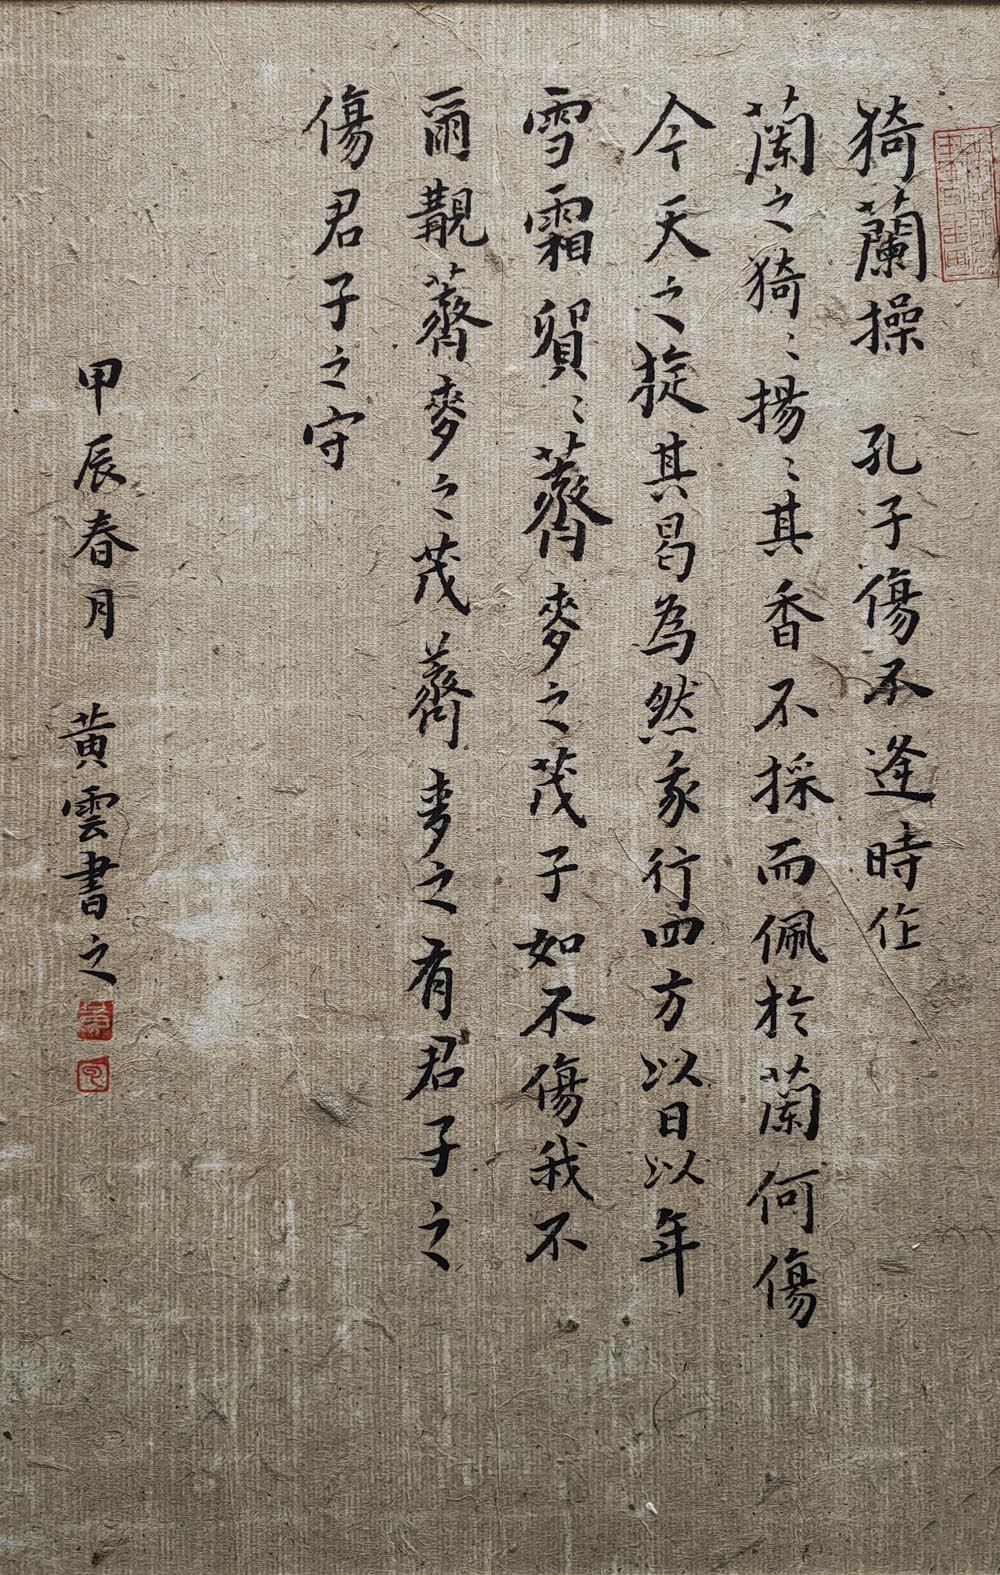 猗蘭操 孔子傷不逢時作
蘭之猗〻揚〻其香不採而佩於蘭何傷
今天之旋其曷為然我行四方以日以年
雪霜貿〻薺麥之茂子如不傷我不
爾覯薺麥之茂薺麥之有君子之
傷君子之守
甲辰春月 黃雲書之